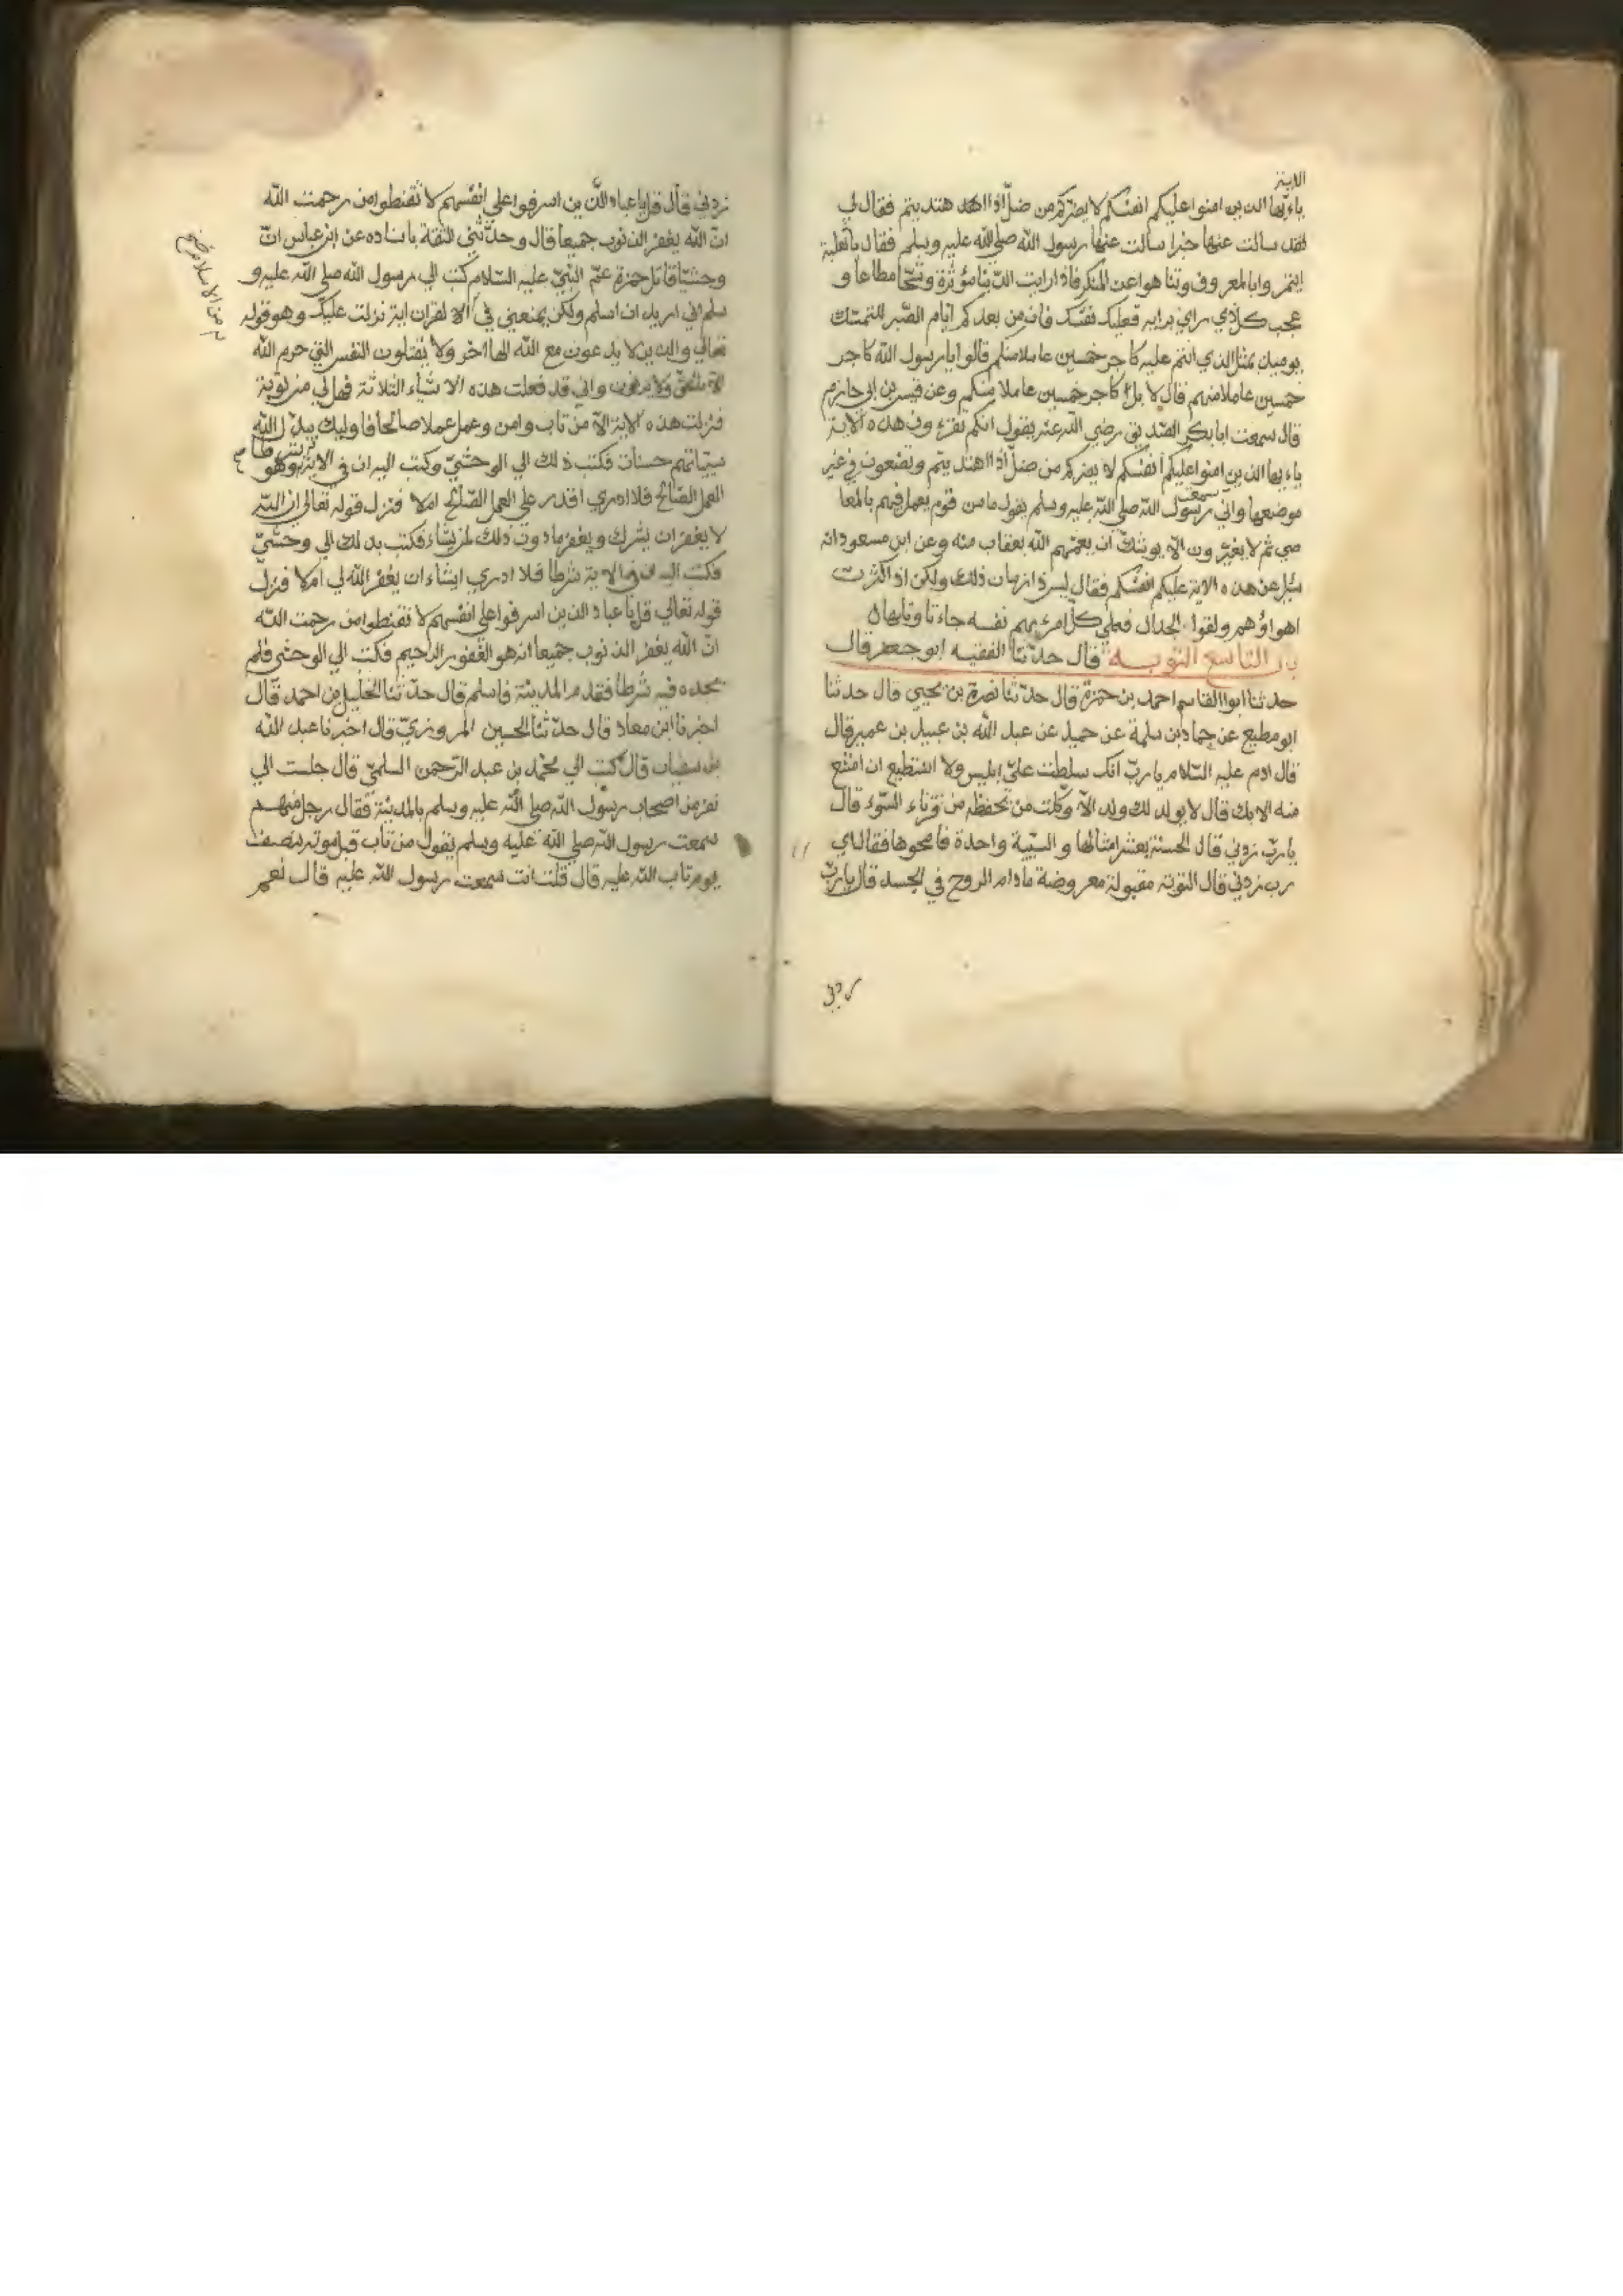 الاية
ياءيها الذين امنوا عليكم انفسكم لا يضركم من ضل اذا اهتديتم فقال لي
لقد سالت عنها خبرا سالت عنها رسول الله صلي الله عليه وسلم فقال يا ثعلبة
ايتمروا بالمعروف وتناهوا عن المنكر فاذا رايت الدنيا مؤثرة وشحا مطاعا و
عجب كل ذي راي برايه فعليك نفسك فان من بعدكم ايام الصبر للتمتك
يوميذ بمثل الذي انتم عليه كاجر خمسين عاملا منكم قالوا يا رسول الله كاجر
خمسين عاملا منهم قال لا بل كاجر خمسين عاملا منكم وعن قيس بن ابي حازم
قال سمعت ابا بكر الصديق رضي الله عنه يقول انكم تقرءون هذه الاية
ياءيها الذين امنوا عليكم انفسكم لا يضركم من ضل اذا اهتديتم وتضعون في غير
موضعها واني سمعت رسول الله صلي الله عليه وسلم يقول ما من قوم يعمل فيهم بالمعا
صي ثم لا يغيرون الا يوشك ان يعمهم الله بعقاب منه وعن ابن مسعود انه
سئل عن هذه الاية عليكم انفسكم فقال ليس ذا زمان ذلك ولكن اذ اكثرت
اهواؤهم ولقوا الجدال فعلي كل امرء نفسه جاء تاويلها
باب التاسع التوبه قال حدثنا الفقيه ابو جعفر قال
حدثنا ابوا القاسم احمد بن حمزة قال حدثنا نصرة بن يحيي قال حدثنا
ابو مطيع عن حماد بن سلمة عن حميد عن عبد الله بن عبيد بن عمير قال
قال ادم عليه السلام يا رب انك سلطت علي ابليس ولا استطيع ان امتنع
منه الا بك قال لا يولد لك ولد الا وكلت من يحفظه من قرناء السوء قال
يا رب زدني قال الحسنة بعشر امثالها والسيية واحدة فامحوها فقال اي
رب زدني قال التوبة مقبولة معروضة ما دام الروح في الجسد قال يا رب
زدني
زدني قال قل يا عباد الذين اسرفوا علي انفسهم لا تقنطوا من رحمت الله
ان الله يغفر الذنوب جميعا قال وحدثني الثقة باسناده عن ابن عباس ان
وحشيا قاتل حمزة عم النبي عليه السلام كتب الي رسول الله صلي الله عليه و
سلم اني اريد ان اسلم ولكن يمنعني في الا لقران اية نزلت عليك وهو قوله
من الاسلام
تعالي والذين لا يدعون مع الله الها اخر ولا يقتلون النفس التي حرم الله
الا بالحق ولا يزنون واني قد فعلت هذه الاشياء الثلاثة فهل لي من توبة
فنزلت هذه الاية الا من تاب وامن وعمل عملا صالحا فاوليك يبدل الله
سيئاتهم حسنات فكتب ذلك الي الوحشي وكتب اليه ان في الاية شرطا وهو
العمل الصالح فلا ادري اقدر علي العمل الصالح ام لا فنزل قوله تعالي ان الله
لا يغفر ان يشرك ويغفر ما دون ذلك لمن يشاء فكتب بذلك الي وحشي
فكتب اليه ان في الاية شرطا فلا ادري ايشاء ان يغفر الله لي ام لا فنزل
قوله تعالي قل يا عباد الذين اسرفوا علي انفسهم لا تقنطوا من رحمت الله
ان الله يغفر الذنوب جميعا انه هو الغفور الرحيم فكتب الي الوحشي فلم
يجده فيه شرطا فقدم المدينة فاسلم قال حدثنا الخليل بن احمد قال
اخبرنا ابن معاد قال حدثنا الحسين المروزي قال اخبرنا عبد الله
بن سفيان قال كتب الي محمد بن عبد الرحمن السلمي قال جلست الي
نفر من اصحاب رسول الله صلي الله عليه وسلم بالمدينة فقال رجل منهم
سمعت رسول الله صلي الله عليه وسلم يقول من تاب قبل موته بنصف
يوم تاب الله عليه قال قلت انت سمعت رسول الله عليه قال نعم